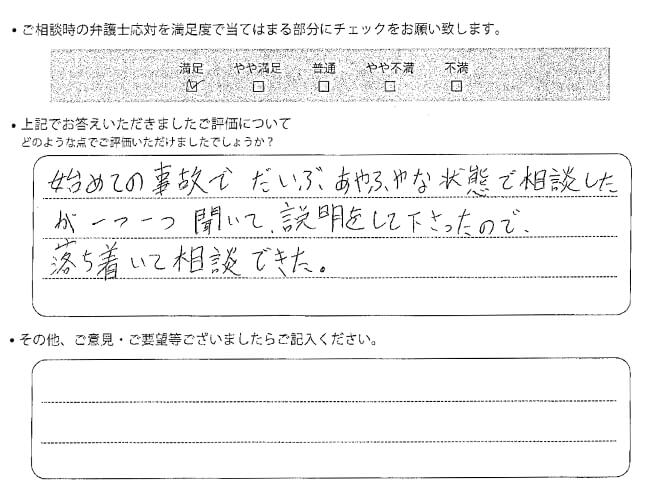 • ご相談時の弁護士応対を満足度で当てはまる部分にチェックをお願い致します。
満足 やや満足 普通 やや不満 不満
☑ □ □ □ □
• 上記でお答えいただきましたご評価について
どのような点でご評価いただけましたでしょうか？
始めての事故で だいぶ、あやふやな状態で相談した
が 一つ一つ 聞いて、説明をして下さったので、
落ち着いて相談できた。
• その他、ご意見・ご要望等ございましたらご記入ください。